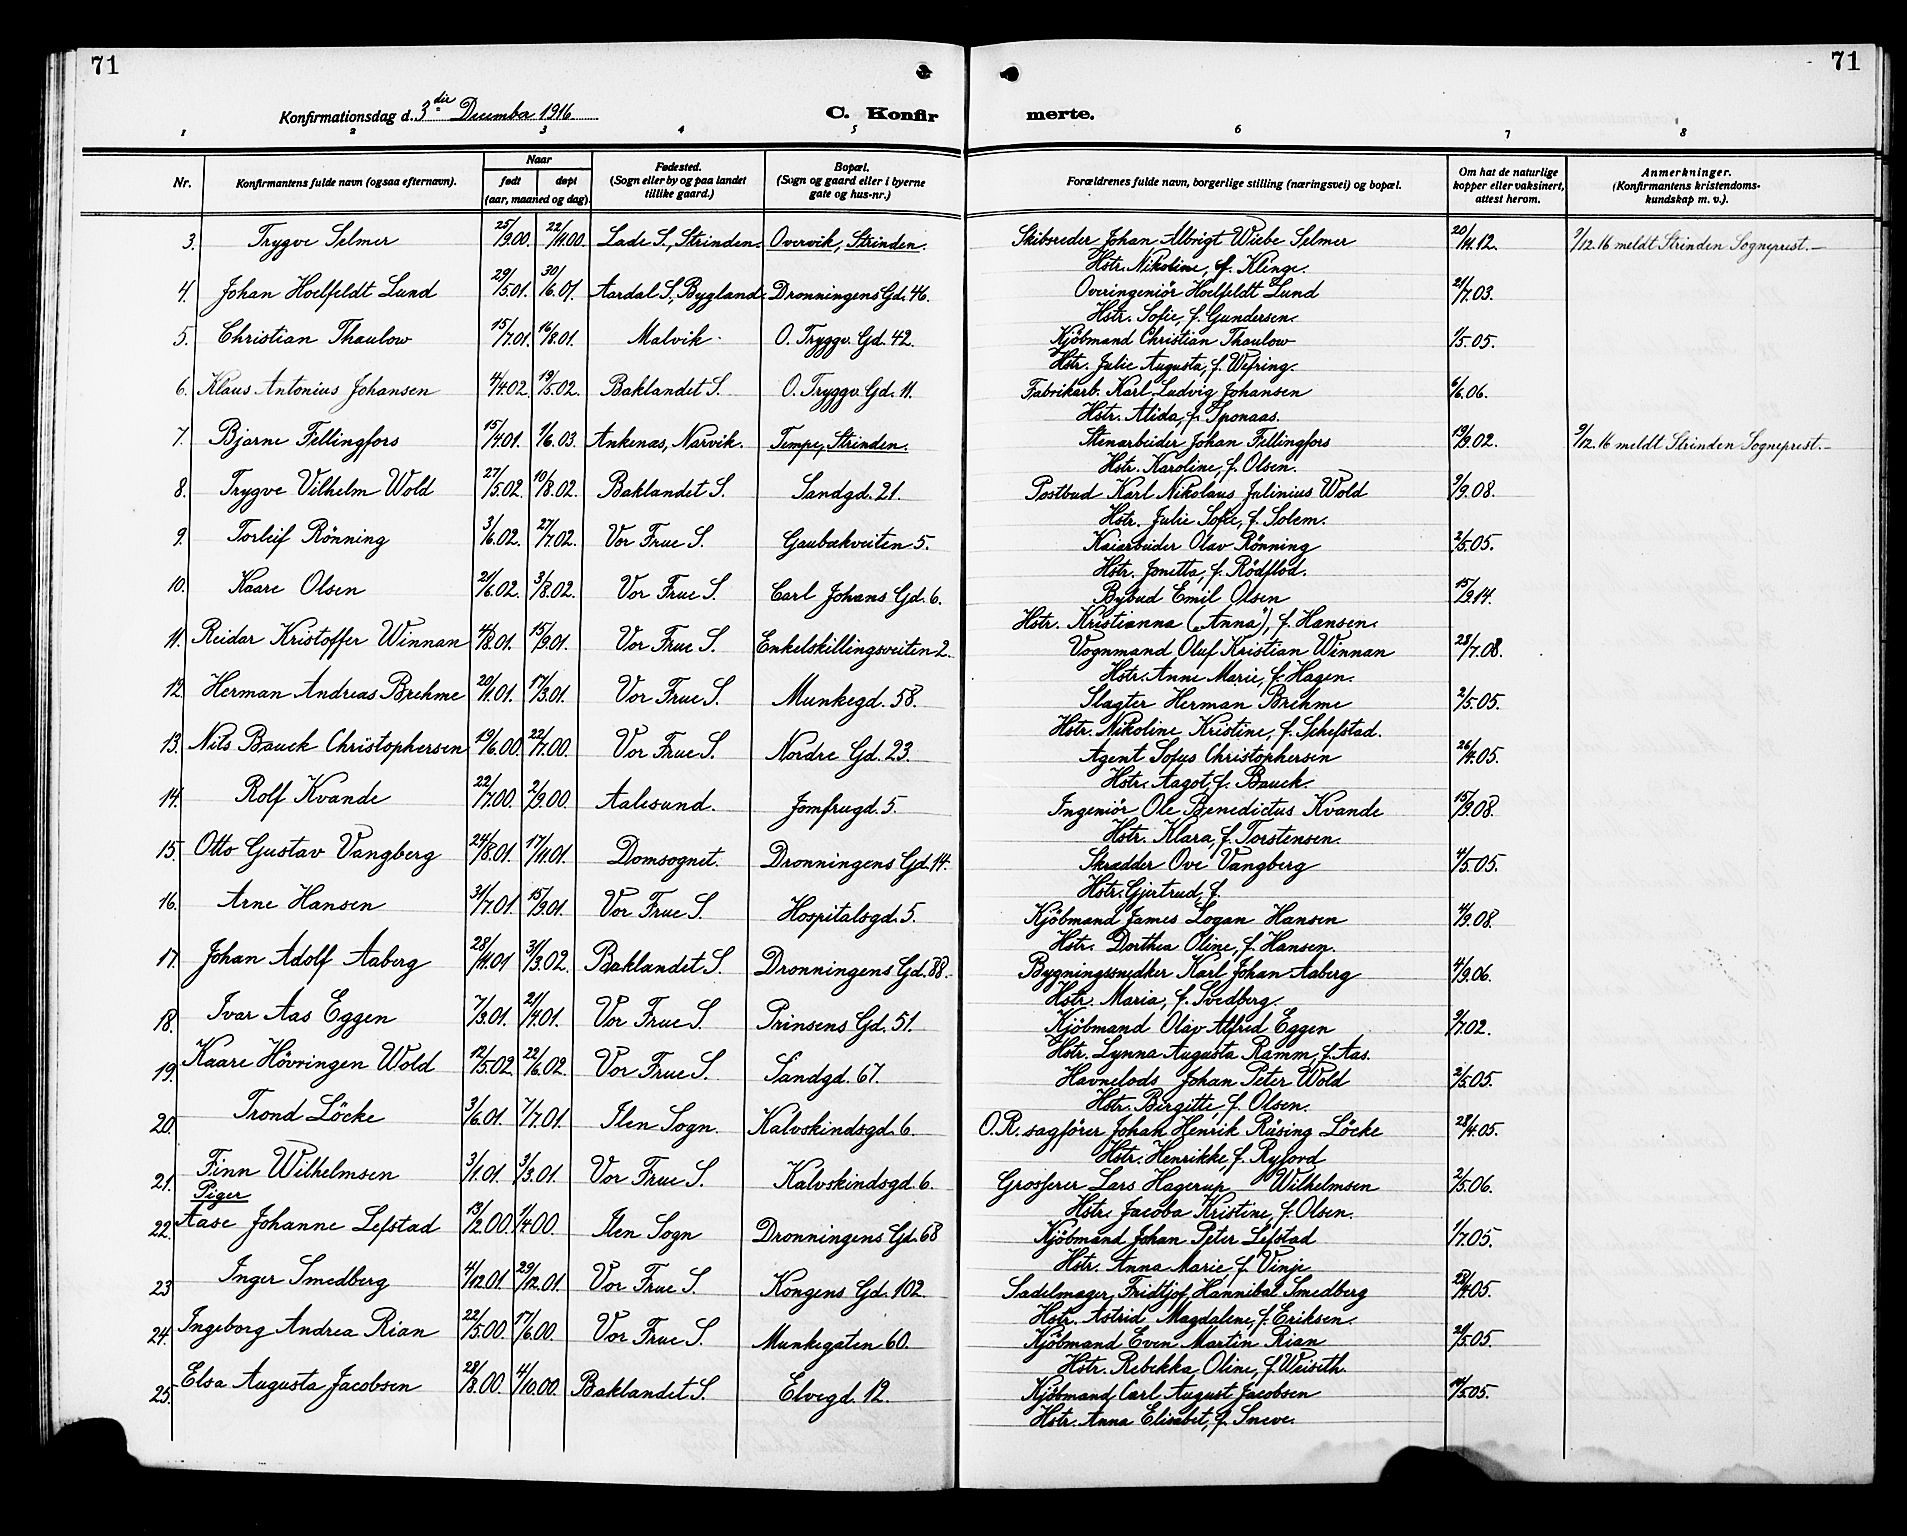 71
71
Konfirmationsdag d. 3die December 1916
C. Konfir
merte.
1 2 3 4 5 6 7 8
Nr.
Konfirmantens fulde navn (ogsaa efternavn).
Naar
født
døpt
(aar, maaned og dag).
Fødested.
(Sogn eller by og paa landet
tillike gaard.)
Bopæl.
(Sogn og gaard eller i byerne
gate og hus-nr.)
Forældrenes fulde navn, borgerlige stilling (næringsvei) og bopæl.
Om hat de naturlige
kopper eller vaksinert,
attest herom.
Anmerkninger.
(Konfirmantens kristendoms-
kundskap m. v.).
3. Trygve Selmer 25/9.00. 22/11.00. Lade S., Strinden. Overvik, Strinden. Skibsreder Johan Albrigt Wiebe Selmer 20/11.12. 9/12.16 meldt Strinden Sogneprest.—
Hstr. Nikoline, f. Klinge.
4. Johan Hoelfeldt Lund 29/5.01. 30/6.01. Aardal S., Bygland. Dronningens Gd. 46. Overingeniör Hoelfeldt Lund 21/7.03.
Hstr. Sofie, f. Gundersen.
5. Christian Thaulow 15/7.01. 16/8.01. Malvik. O. Tryggv. Gd. 42. Kjöbmand Christian Thaulow 1/5.05.
Hstr. Julie Augusta, f. Wefring.
6. Klaus Antonius Johansen 4/4.02. 19/5.02. Baklandet S. O. Tryggv. Gd. 11. Fabrikarb. Karl Ludvig Johansen 6/6.06.
Hstr. Alida, f. Sponaas.
7. Bjarne Fellingfors 15/4.01. 1/6.03. Ankenæs, Narvik. Tempe, Strinden. Stenarbeider Johan Fellingfors 19/9.02. 9/12.16 meldt Strinden Sogneprest.—
Hstr. Karoline, f. Olsen.
8. Trygve Vilhelm Wold 27/5.02. 10/8.02. Baklandet S. Sandgd. 21. Postbud Karl Nikolaus Julinius Wold 3/9.08.
Hstr. Julie Sofie, f. Solem.
9. Torleif Rönning 3/6.02. 27/7.02. Vor Frue S. Gaubækveiten 5. Kaiarbeider Olav Rönning 2/5.05.
Hstr. Jonetta, f. Rödflod.
10. Kaare Olsen 21/6.02. 3/8.02. Vor Frue S. Carl Johans Gd. 6. Bybud Emil Olsen 15/9.14.
Hstr. Kristianna („Anna"), f. Hansen.
11. Reidar Kristoffer Winnan 4/8.01. 15/9.01. Vor Frue S. Enkelskillingsveiten 2. Vognmand Oluf Kristian Winnan 28/7.08.
Hstr. Anne Marie, f. Hagen.
12. Herman Andreas Brehme 20/1.01. 17/3.01. Vor Frue S. Munkegd. 58. Slagter Herman Brehme 2/5.05.
Hstr. Nikoline Kristine, f. Schefstad.
13. Nils Bauck Christophersen 19/6.00. 22/7.00. Vor Frue S. Nordre Gd. 23. Agent Sofus Christophersen 26/4.05.
Hstr. Aagot, f. Bauck.
14. Rolf Kvande 22/7.00. 2/9.00. Aalesund. Jomfrugd. 5. Ingeniör Ole Benedictus Kvande 15/9.08.
Hstr. Klara, f. Torstensen.
15. Otto Gustav Vangberg 24/8.01. 17/11.01. Domsognet. Dronningens Gd. 14. Skrædder Ove Vangberg 4/5.05.
Hstr. Gjertrud, f.
16. Arne Hansen 31/7.01. 15/9.01. Vor Frue S. Hospitalsgd. 5. Kjöbmand James Logan Hansen 4/9.08.
Hstr. Dorthea Oline, f. Hansen.
17. Johan Adolf Aaberg 28/11.01 31/3.02. Baklandet S. Dronningens Gd. 88. Bygningssnedker Karl Johan Aaberg 4/9.06.
Hstr. Maria, f. Svedberg.
18. Ivar Aas Eggen 7/3.01. 21/4.01. Vor Frue S. Prinsens Gd. 51. Kjöbmand Olav Alfred Eggen 9/7.02.
Hstr. Lynna Augusta Ramm, f. Aas.
19. Kaare Hövringen Wold 12/5.02. 22/6.02. Vor Frue S. Sandgd. 67. Havnelods Johan Peter Wold 2/5.05.
Hstr. Birgitte, f. Olsen.
20. Trond Löcke 3/6.01. 7/7.01. Ilen Sogn. Kalvskindsgd. 6. O.R. sagförer Johan Henrik Räsing Löcke 28/4.05.
Hstr. Henrikke, f. Ryjord
21. Finn Wilhelmsen 3/1.01. 3/3.01. Vor Frue S. Kalvskindsgd. 6. Grosserer Lars Hagerup Wilhelmsen 2/5.06.
Hstr. Jacoba Kristine, f. Olsen.
Piger
22. Aase Johanne Lefstad 13/2.00. 1/4.00. Ilen Sogn Dronningens Gd. 68 Kjöbmand Johan Peter Lefstad 1/7.05.
Hstr. Anna Marie, f. Vinje
23 Inger Smedberg 4/12.01. 29/12.01. Vor Frue S. Kongens Gd. 102. Sadelmager Fridtjof Hannibal Smedberg 28/4.05.
Hstr. Astrid Magdalene, f. Eriksen.
24. Ingeborg Andrea Rian 22/5.00. 17/6.00. Vor Frue S. Munkegaten 60. Kjöbmand Even Martin Rian 21/5.05.
Hstr. Rebekka Oline, f. Weiseth.
25. Elsa Augusta Jacobsen 28/8.00. 4/10.00. Baklandet S. Elvegd. 12. Kjöbmand Carl August Jacobsen 11/5.05.
Hstr. Anna Elisabet, f. Sneve.